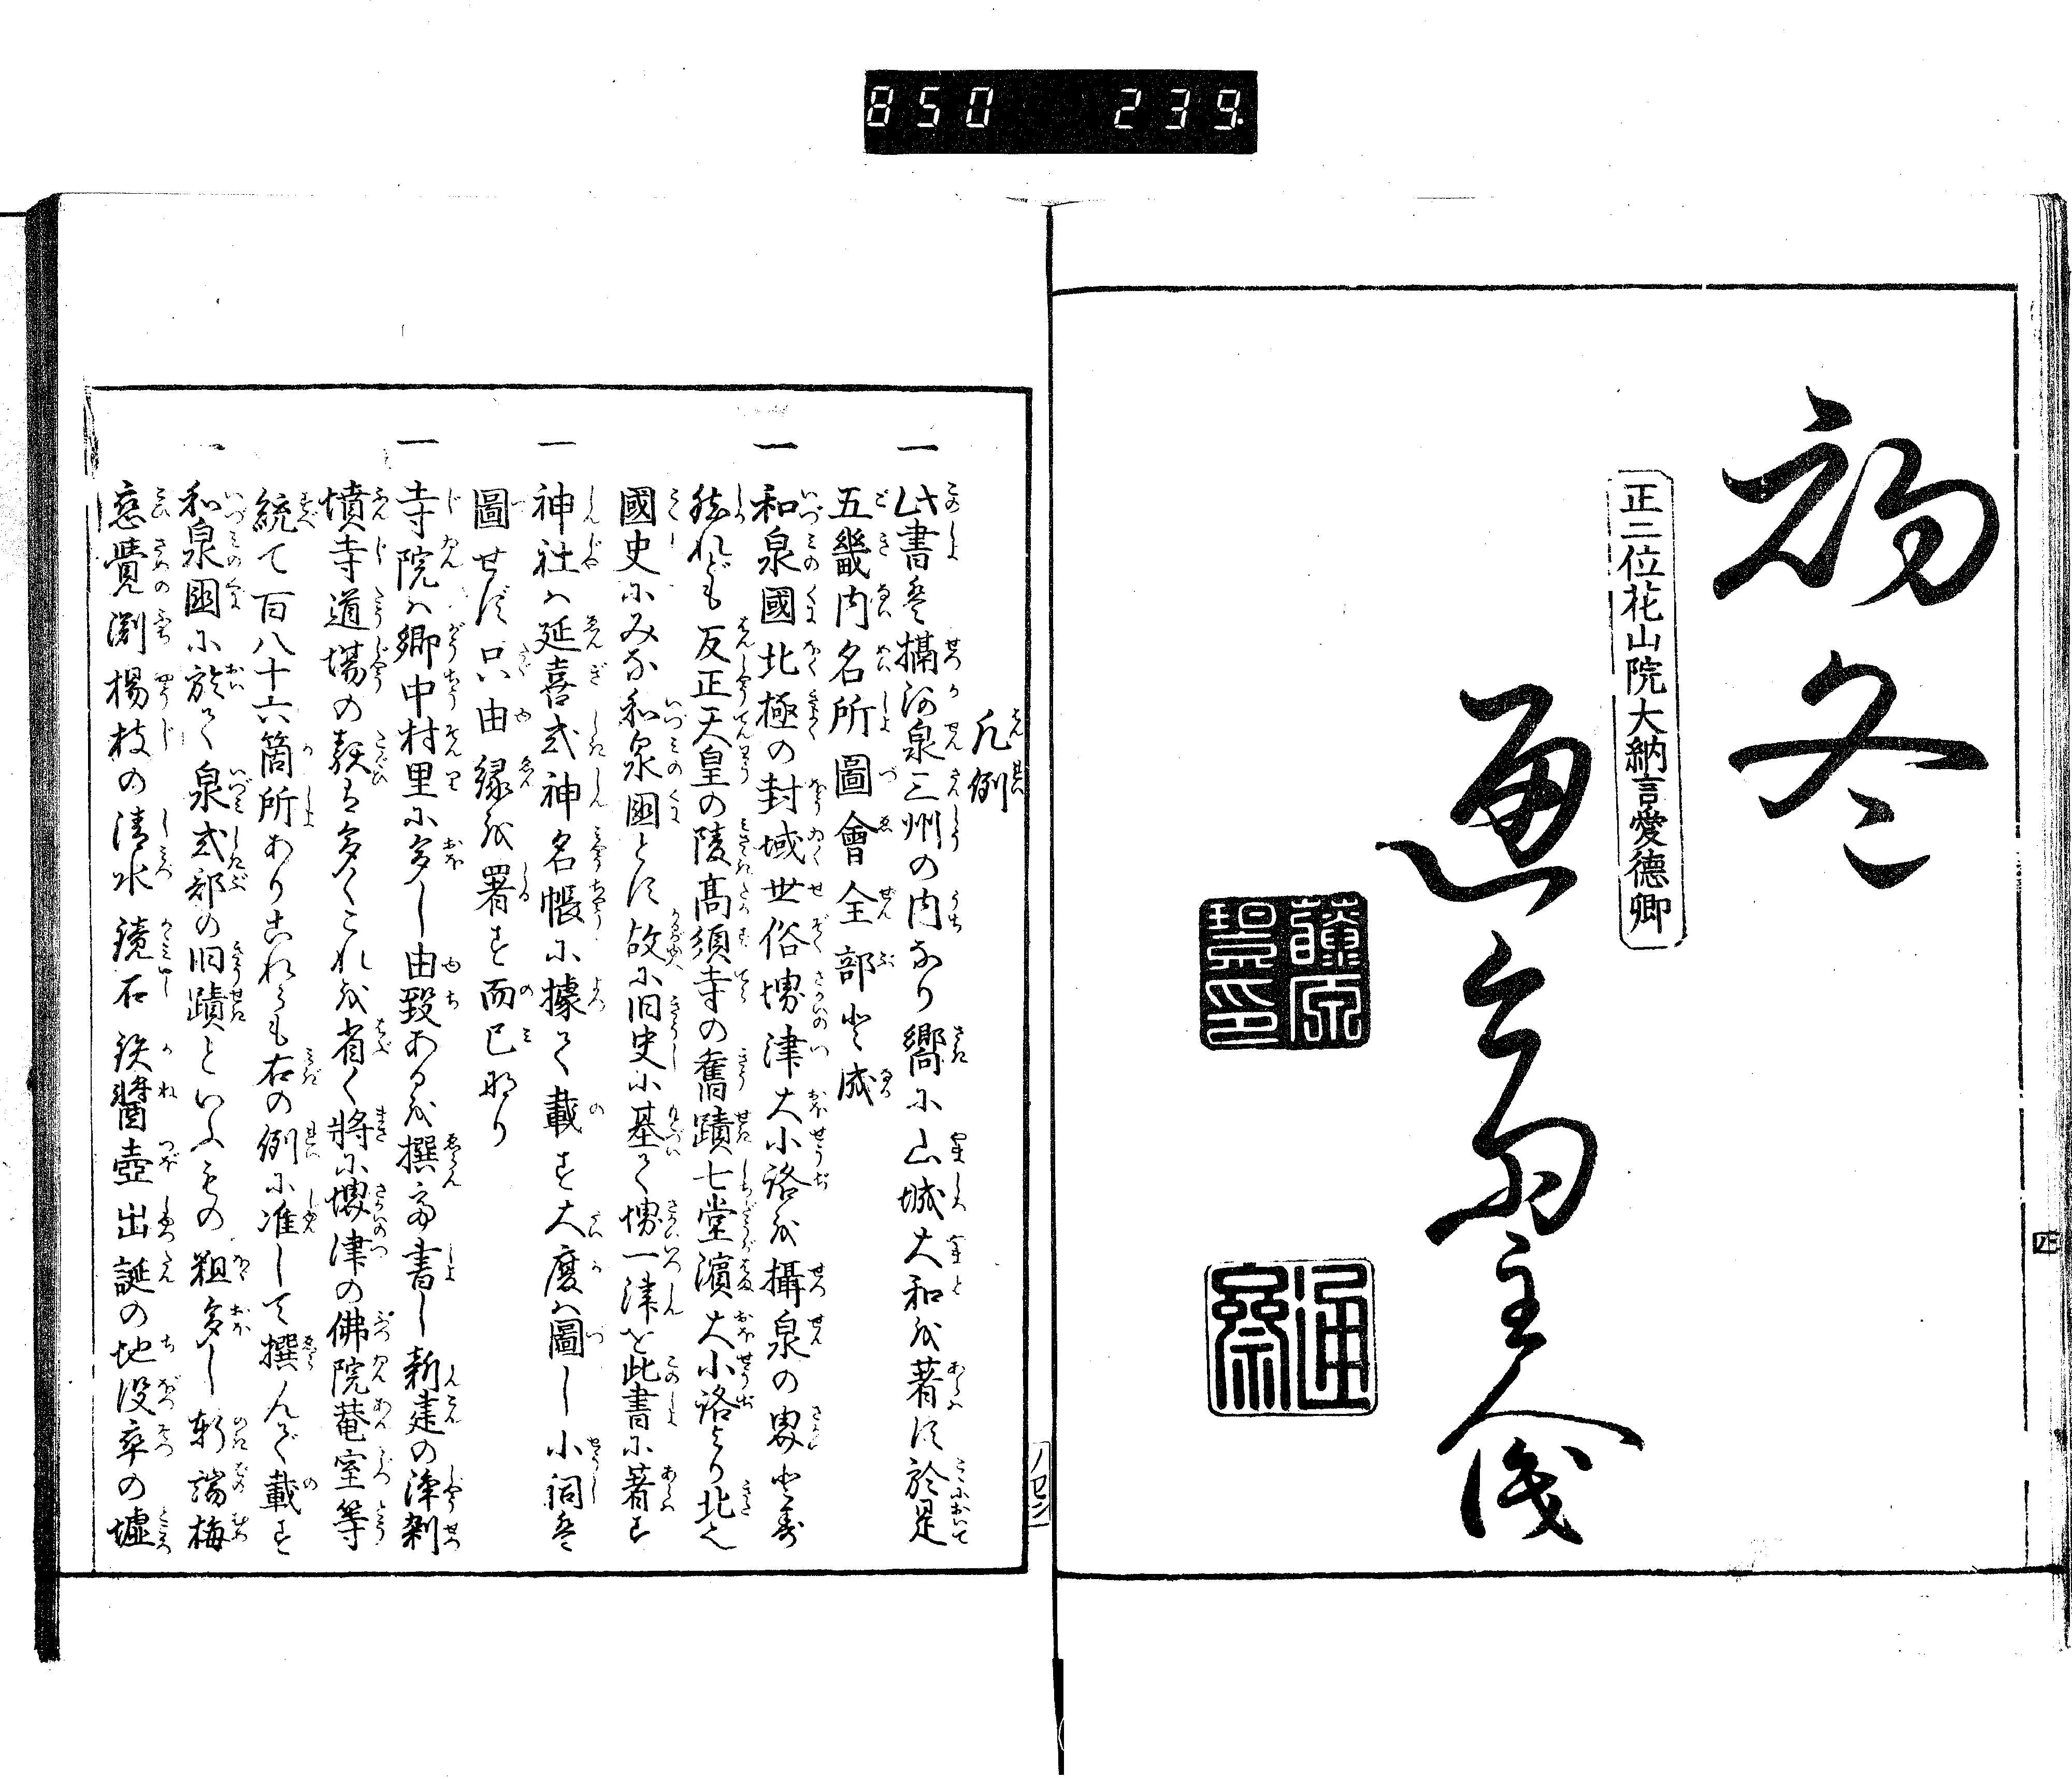 850 239
初冬
正二位花山院大納言愛徳卿
四
凡例
一 此書は攝河泉三州の内なり嚮に山城大和を著す於是
五畿内名所圖會全部と成
一 和泉國北極の封域世俗堺津大小路を攝泉の界とす
然れども反正天皇の陵髙須寺の舊蹟七堂濵大小路より北也
國史にみな和泉國とす故に旧史に基て堺一津を此書に著す
一 神社ハ延喜式神名帳に據て載す大廈ハ圖し小祠は
圖せず只由縁を署す而已なり
一 寺院ハ郷中村里に多し由致あるを撰て書し新建の淨刹
墳寺道場の類は多くこれを省く將に堺津の佛院菴室等
統て百八十六箇所ありこれらも右の例に准して撰んで載す
一 和泉國に於て泉式部の旧蹟といふもの粗多し軒端梅
恋覺渕楊枝の清水鏡石鉄醬壺出誕の地没卒の墟